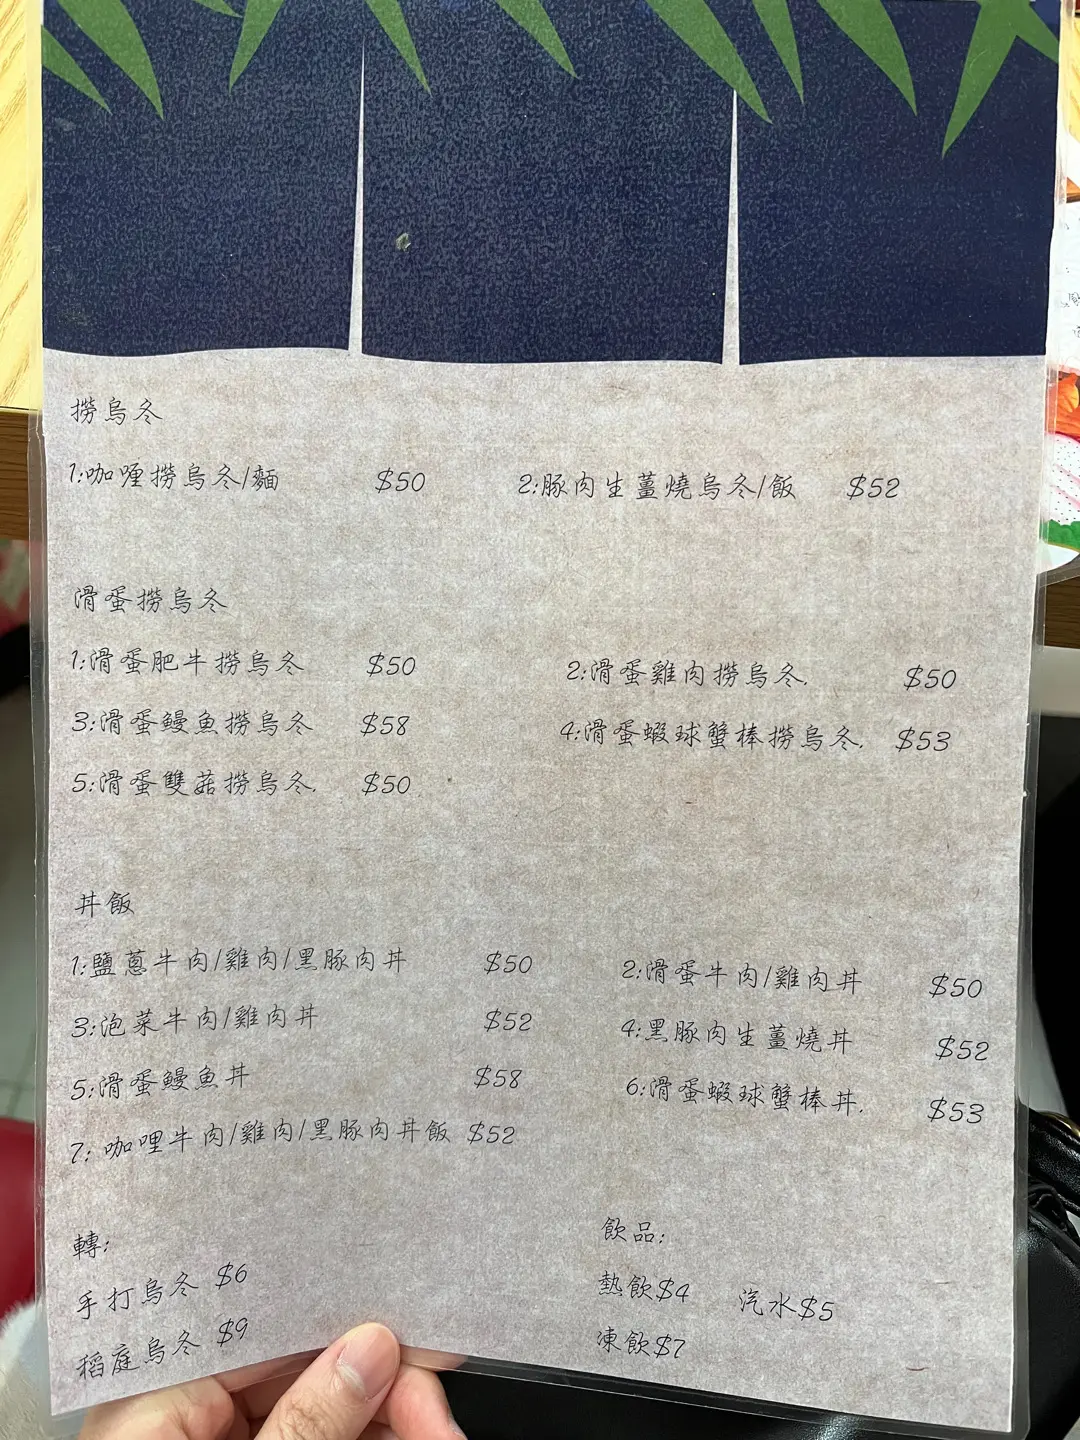 撈烏冬
1:咖喱撈烏冬/麵 $50 2:豚肉生薑燒烏冬/飯 $52
滑蛋撈烏冬
1:滑蛋肥牛撈烏冬 $50 2:滑蛋雞肉撈烏冬. $50
3:滑蛋鰻魚撈烏冬 $58 4:滑蛋蝦球蟹棒撈烏冬. $53
5:滑蛋雙菇撈烏冬. $50
丼飯
1:鹽蔥牛肉/雞肉/黑豚肉丼 $50 2:滑蛋牛肉/雞肉丼 $50
3:泡菜牛肉/雞肉丼 $52 4:黑豚肉生薑燒丼 $52
5:滑蛋鰻魚丼 $58 6:滑蛋蝦球蟹棒丼. $53
7: 咖哩牛肉/雞肉/黑豚肉丼飯 $52
轉:
手打烏冬 $6
稻庭烏冬 $9
飲品:
熱飲$4 汽水$5
凍飲$7